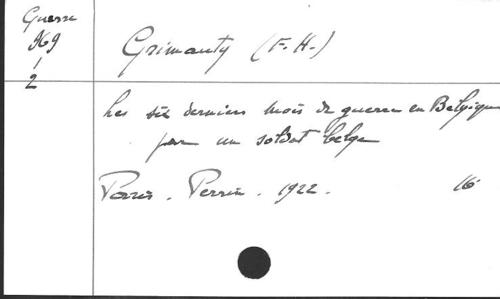 Guerre
969
1
2
Grimauty (F. H.)
Les six derniers mois de guerre en Belgique
par un soldat belge
Paris. Perrin. 1922. 16